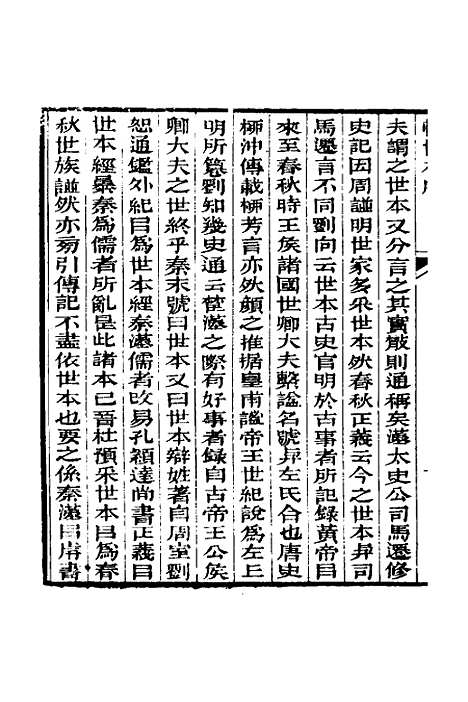 夫謂之世本又分言之其實散則通稱矣漢太史公司馬遷修
史記因周譜明世家多采世本然春秋正義云今之世本與司
馬遷言不同劉向云世本古史官明於古事者所記錄黃帝㠯
來至春秋時王族諸國世卿大夫繫謚名號與左氏合也唐史
柳沖傳載柳芳言亦然顏之推据皇甫謐帝王世紀說為左丘
明所篹劉知幾史通云楚漢之際有好事者錄自古帝王公族
卿大夫之世終乎秦末號曰世本又曰世本辯姓著自周室劉
恕通鑑外紀㠯為世本經秦漢儒者改易孔穎達尚書正義㠯
世本經暴秦為儒者所亂是此諸本已晉杜預采世本㠯為春
秋世族譜然亦㫄引傳記不盡依世本也要之係秦漢㠯歬書